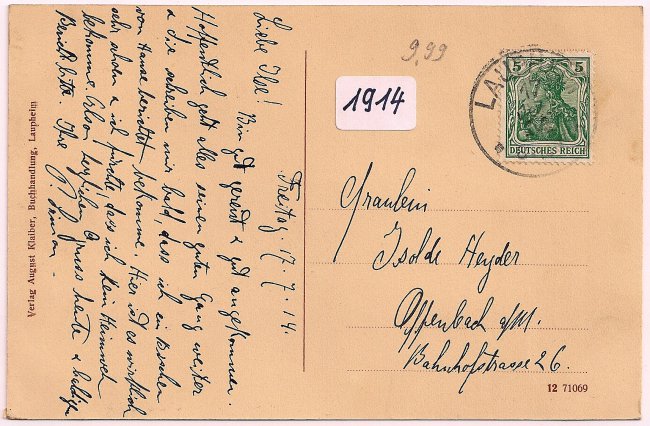 Freitag, 17.7.14.
Liebe Ilse!
Bin gut gereist & gut angekommen.
Hoffentlich geht alles seinen guten Gang weiter
& Sie schreiben mir bald, dass ich ein bischen
von Hause berichtet bekomme. Hier ist es wirklich
sehr schön & ich fürchte, dass ich kein Heimweh
bekomme. Also herzlichen Gruss heute & baldige
bitte. Ihre P.
Verlag August Klaiber, Buchhandlung, Laupheim
9,99
1914
LAU
5 5
DEUTSCHES REICH
Fräulein
Isolde Heyder
Offenbach a/M.
Bahnhofstrasse 26.
12 71069